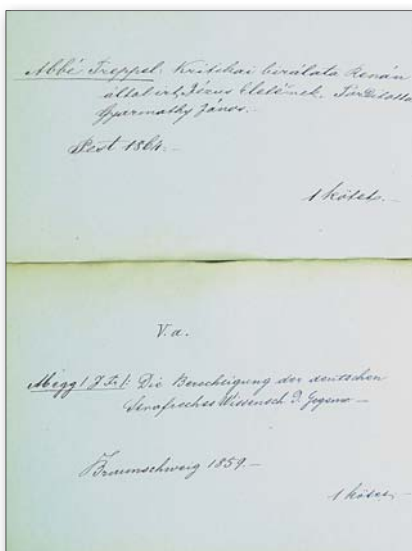 Abbé Freppel: Kritikai birálata Renán
által irt Jézus Életének. Forditotta
Gyarmathy János.-
Pest 1864.-
1 kötet.-
V.a.
/J Fr/: Die Berechigung der deutschen
Strafrechts Wissensch d.
Braunschweig 1859.-
1 kötet.-